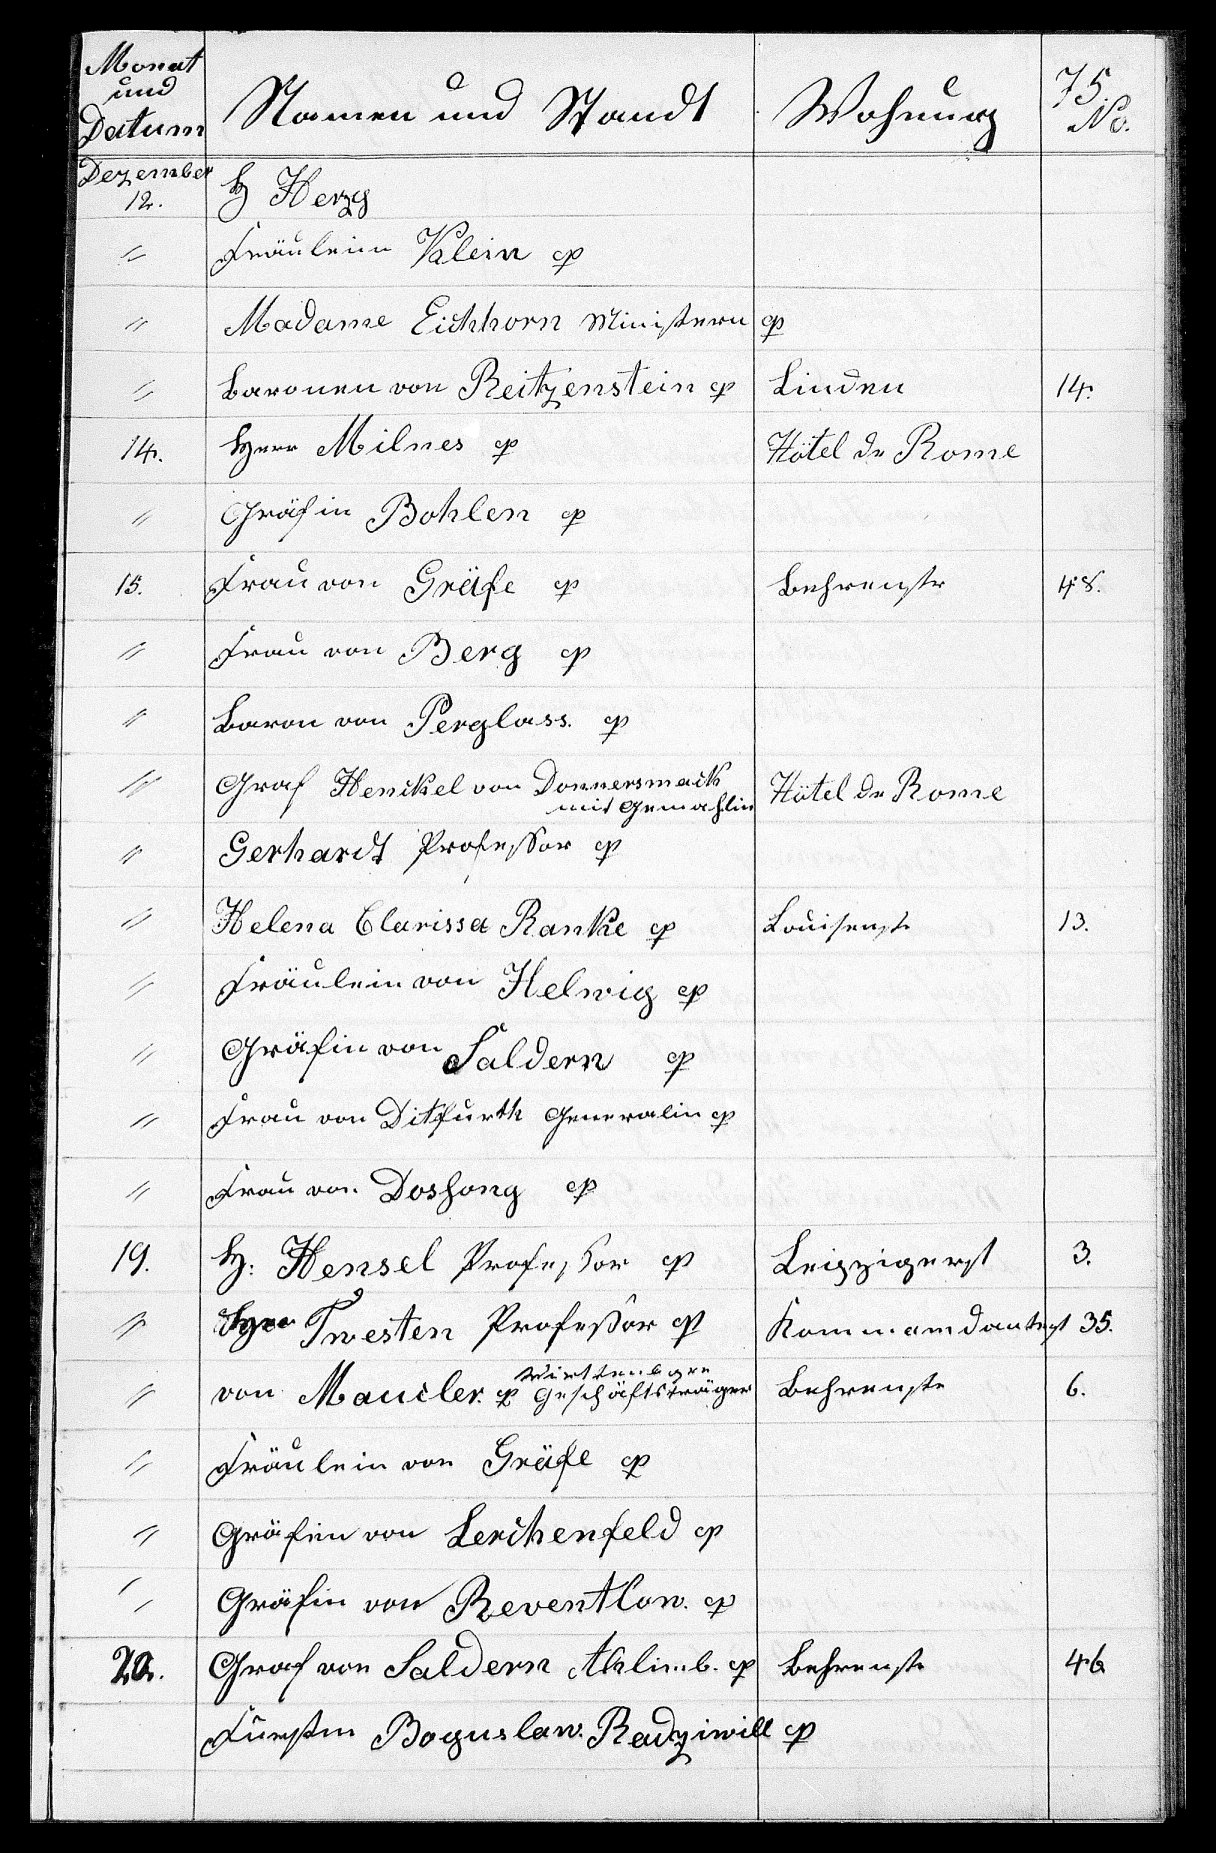 Monat und Datum Namen und Standt Wohnung 75. No.
Dezember 12. H Herzg
" Fräulein Klein cp
" Madame Eichhorn Ministern cp
" Baronen von Reitzenstein cp Linden 14.
14. Herr Milnes cp Hôtel de Rome
" Gräfin Bohlen cp
15. Frau von Gräfe cp Behrenstr 48.
" Frau von Berg cp
" Baron von Perglass. cp
" Graf Henckel von Donnersmack
mit Gemahlin Hôtel de Rome
" Gerhardt Professor cp
" Helena Clarissa Ranke cp Louisenst 13.
" Fräulein von Helwig cp
" Gräfin von Saldern cp
" Frau von Ditfurth Generalin cp
" Frau von Dossong cp
19. H: Hensel Professor cp Leipzigerst 3.
" Herr Twesten Professor cp Kommandantest 35.
" von Maucler. cp Geschäftsträger Behrenste 6.
" Fräulein von Gräfe cp
" Gräfin von Lerchenfeld cp
" Gräfin von Reventlow. cp
20. Graf von Saldern Ahlimb. cp Behrenste 46
Fürsten Boguslaw. Radziwill cp